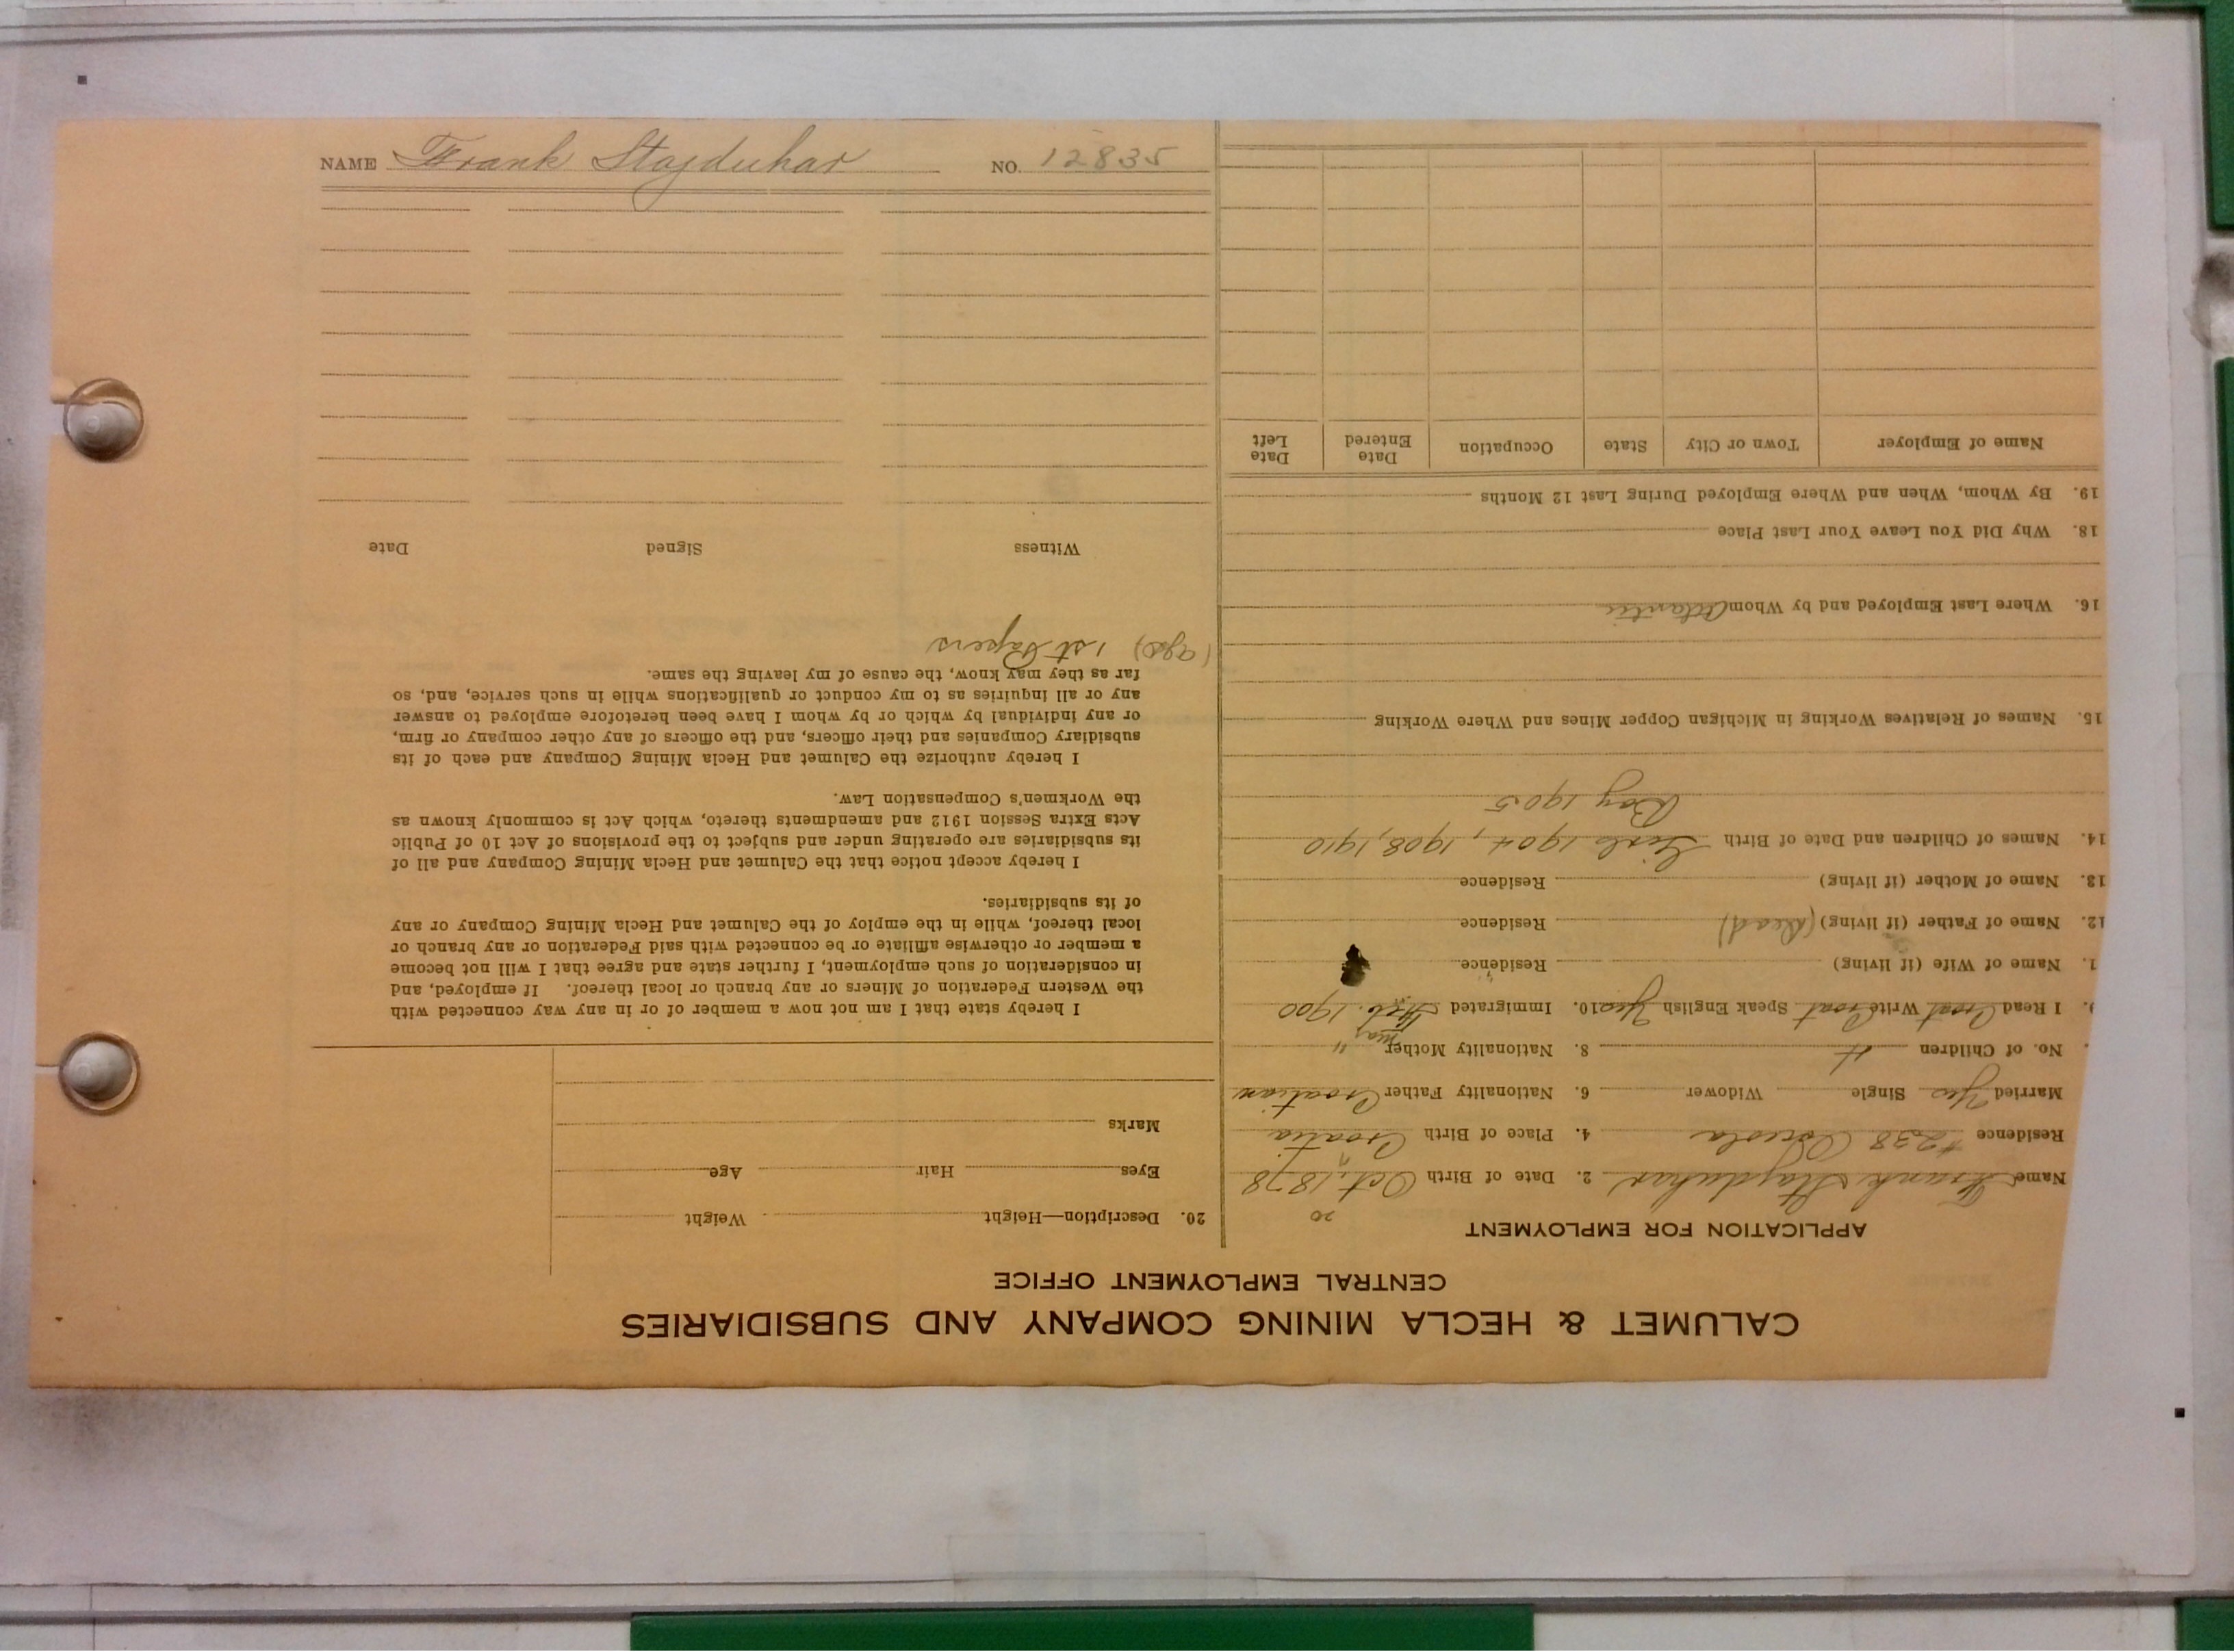 CALUMET & HECLA MINING COMPANY AND SUBSIDIARIES
CENTRAL EMPLOYMENT OFFICE
APPLICATION FOR EMPLOYMENT
20
Name Frank Stajduhar 2. Date of Birth Oct, 1878
Residence #238 Osceola 4. Place of Birth Croatia
Married Yes Single Widower 6. Nationality Father Croatian
No. of Children 4 8. Nationality Mother "
9. I Read Croat Write Croat Speak English Yes 10. Immigrated Feb. 1900
1. Name of Wife (if living) Residence
12. Name of Father (if living) (Dead) Residence
13. Name of Mother (if living) Residence
14. Names of Children and Date of Birth Girls 1904, 1908, 1910
Boy 1905
15. Names of Relatives Working in Michigan Copper Mines and Where Working
16. Where Last Employed and by Whom Atlantic
18. Why Did You Leave Your Last Place
19. By Whom, When and Where Employed During Last 12 Months
Name of Employer Town or City State Occupation Date Entered Date Left
20. Description—Height Weight
Eyes Hair Age
Marks
I hereby state that I am not now a member of or in any way connected with
the Western Federation of Miners or any branch or local thereof. If employed, and
in consideration of such employment, I further state and agree that I will not become
a member or otherwise affiliate or be connected with said Federation or any branch or
local thereof, while in the employ of the Calumet and Hecla Mining Company or any
of its subsidiaries.
I hereby accept notice that the Calumet and Hecla Mining Company and all of
its subsidiaries are operating under and subject to the provisions of Act 10 of Public
Acts Extra Session 1912 and amendments thereto, which Act is commonly known as
the Workmen's Compensation Law.
I hereby authorize the Calumet and Hecla Mining Company and each of its
subsidiary Companies and their officers, and the officers of any other company or firm,
or any individual by which or by whom I have been heretofore employed to answer
any or all inquiries as to my conduct or qualifications while in such service, and, so
far as they may know, the cause of my leaving the same.
1st Papers
Witness Signed Date
NAME Frank Stajduhar NO. 12835